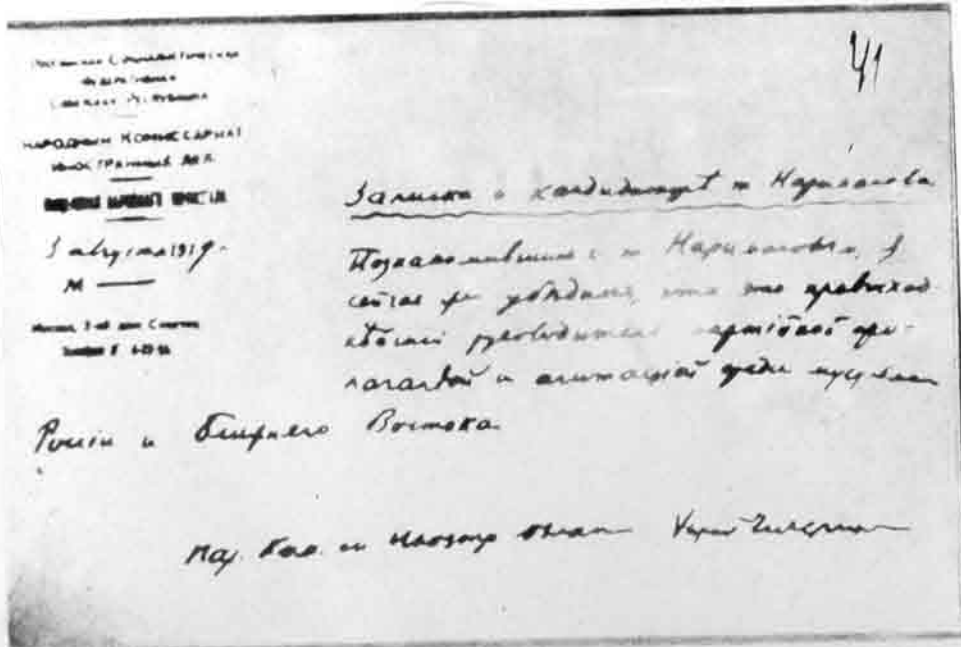 41
Российская Социалистическая
Федеративная
Советская Республика
НАРОДНЫЙ КОМИССАРИАТ
ИНОСТРАННЫХ ДЕЛ
3 августа 1919 г.
№
Записка о кандидатуре т. Нариманова
Познакомившись с т. Наримановым, я
сейчас же убедился, что это превосход-
нѣйший руководитель партійной про-
пагандой и агитацией среди мусульман
Россіи и ближнего Востока.
Нар. Ком. по Иностр. Делам